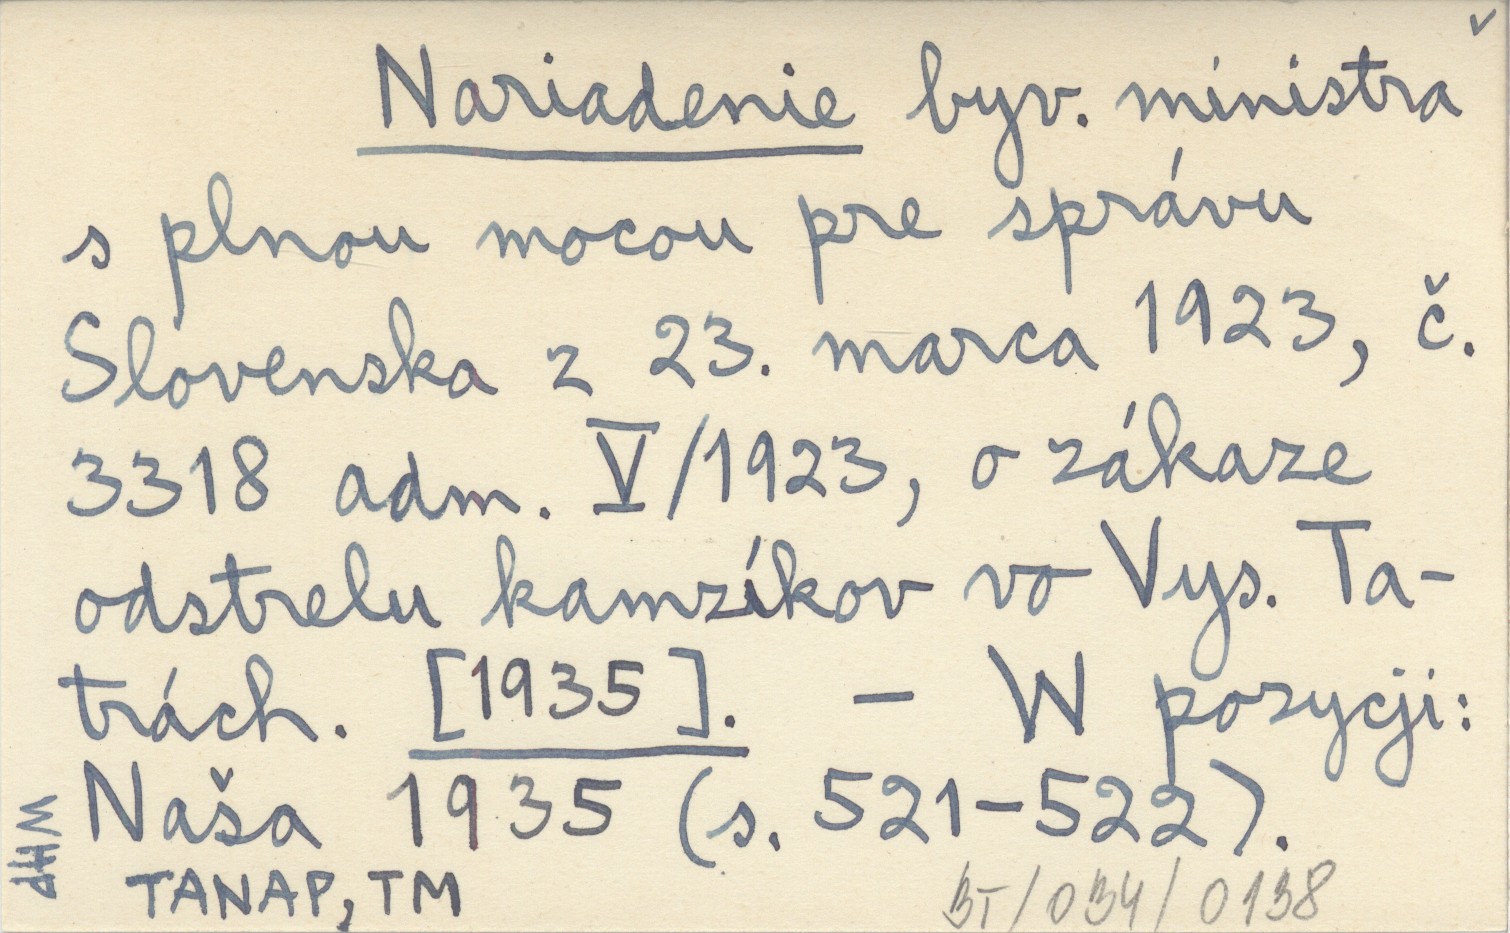 Nariadenie byv. ministra
s plnou mocou pre správu
Slovenska z 23. marca 1923, č.
3318 adm. V/1923, o zákaze
odstrelu kamzíkov vo Vys. Ta-
trách. [1935]. – W pozycji:
Naša 1935 (s. 521-522).
WHP
TANAP, TM
BT/034/0138